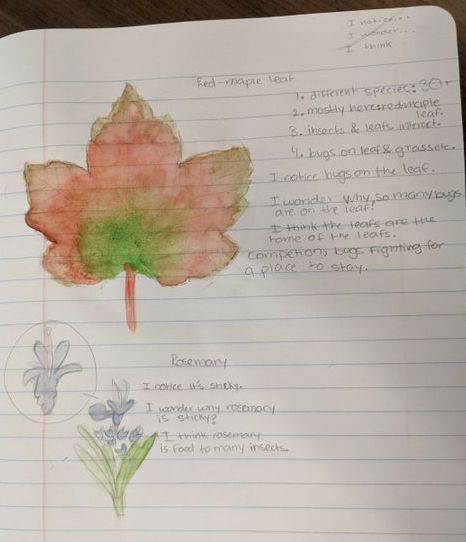 I notice...
I wonder...
I think
Red-maple leaf
1. different species: 30+
2. mostly here: red maple
leaf.
3. insects & leafs interact.
4. bugs on leaf & grass etc.
I notice bugs on the leaf.
I wonder why so many bugs
are on the leaf?
I think the leafs are the
home of the leafs.
Competion, bugs fighting for
a place to stay.
Rosemary
I notice it's sticky.
I wonder why rosemary
is sticky?
I think rosemary
is food to many insects.